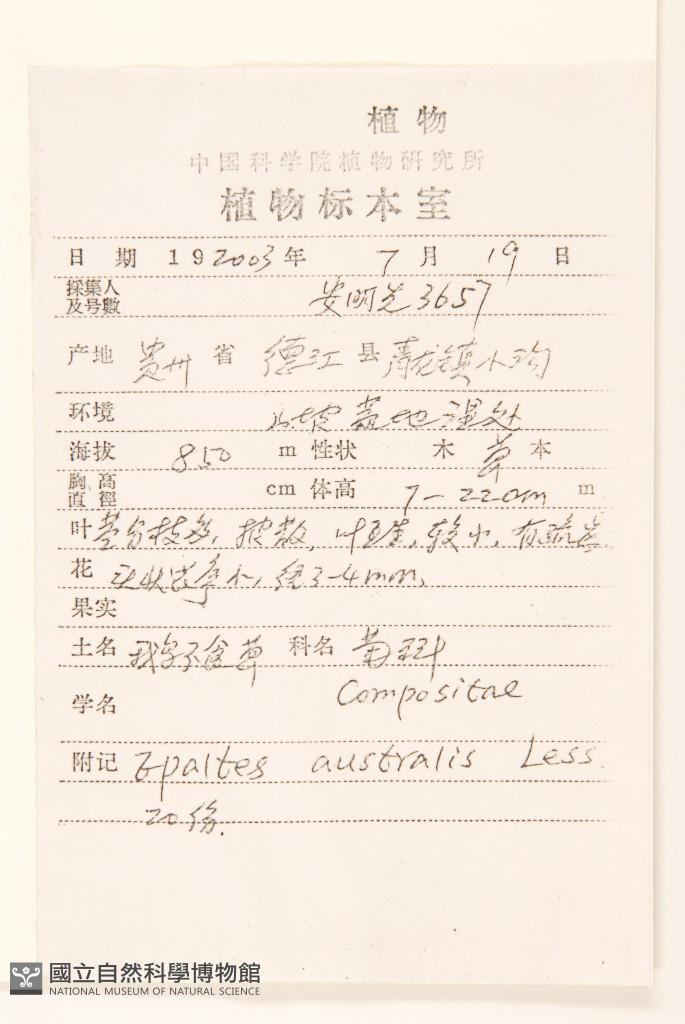 植物
中国科学院植物研究所
植物标本室
日期 19 2003年 7月 19日
採集人及号數 安明先 3657
产地 贵州 省 德江 县 青龙镇小沟
环境 山坡 荒地 湿处
海拔 850 m 性状 木 草 本
胸高直徑 cm 体高 7-22cm m
叶 茎分枝多, 披散, 叶互生, 较小, 有疏齿
花 头状花序小, 径3-4mm,
果实
土名 鹅不食草 科名 菊科
学名 Compositae
附记 Epaltes australis Less.
20份.
國立自然科學博物館
NATIONAL MUSEUM OF NATURAL SCIENCE